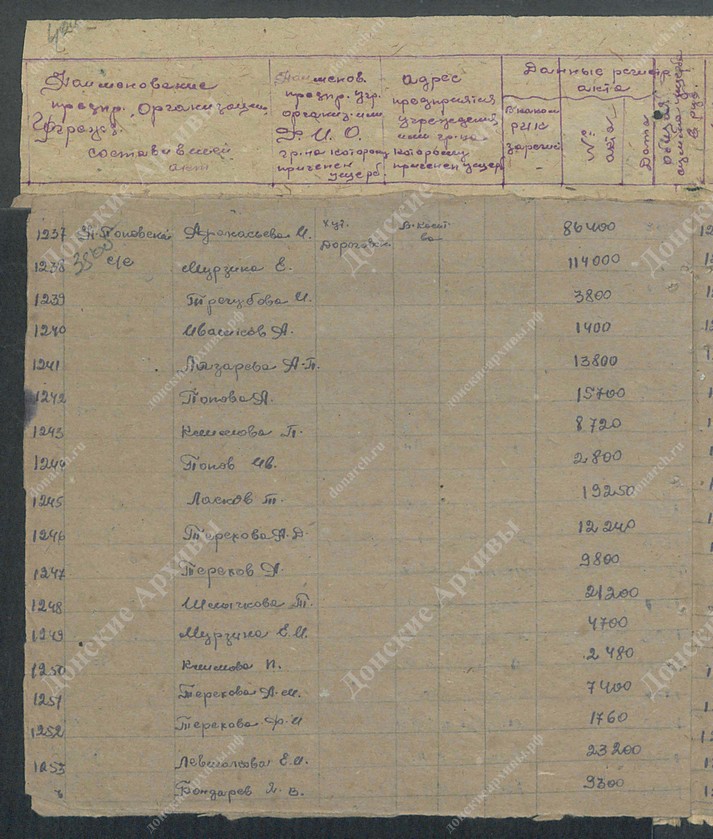 Наименование
предпр. организации
Учрежд.
составившей
акт
Наименов.
предпр. учр.
организ. или
Ф.И.О.
гр-на которому
причинен
ущерб.
адрес
предприятия
учреждения
или гр-на
которому
причинен ущерб
Данные регистр
акта
В каком
РИК
зарегис
№
акта
Дата
общая
сумма ущерба
в руб.
1237 Н. Поповский Афанасьева И. хут. В-хозст 86400
3800 во
1238 с/с Мурзина Е. 114000
1239 Трегубова И. 3800
1240 Ивасиков А. 1400
1241 Лазарева А.П. 13800
1242 Попова А. 15700
1243 Климова П. 8720
1244 Попов Ив. 2800
1245 Ласков Т. 19250
1246 Терехова А.Д. 12240
1247 Терехов А. 9800
1248 Шлычкова Т. 21200
1249 Мурзина Е.И. 4700
1250 Климова П. 2480
1251 Терехова А.М. 7400
1252 Терехова Ф.И 1760
1253 Е.И. 23200
Бондарев 9300
Донские Архивы
donarch.ru
донскиеархивы.рф